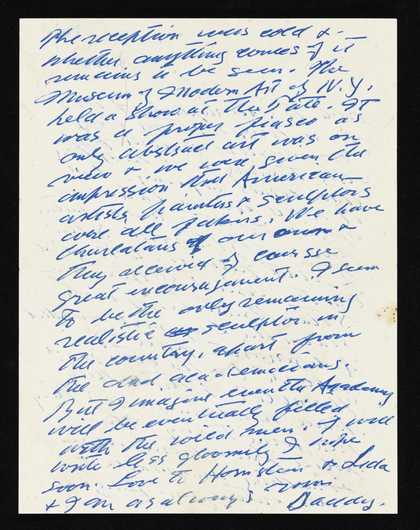 The reception was cold &
whether anything comes of it
remains to be seen. The
Museum of Modern Art of N.Y.
held a show at the Tate. It
was a proper fiasco as
only abstract art was on
view & we were given the
impression that American
artists, painters & sculptors
were all fakirs. We have
charlatans of our own &
they received of course
great encouragement. I seem
to be the only remaining
realistic sculptor in
the country, apart from
the dead academicians.
But I imagine even the Academy
will be eventually filled
with the wild men. I will
write less gloomily I hope
soon. Love to & Leda
& I am as always your